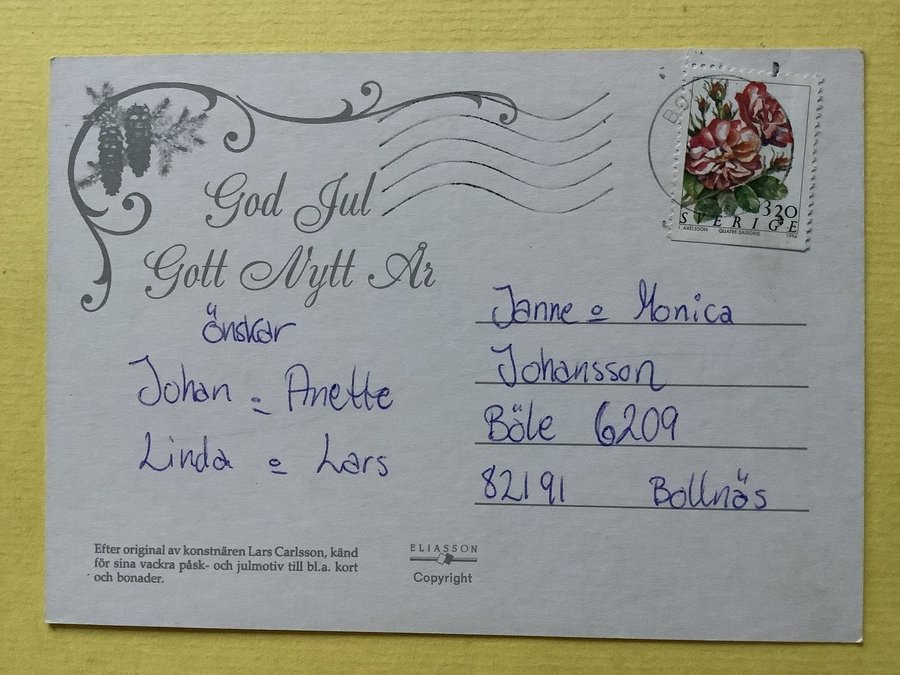 God Jul
Gott Nytt År
önskar
Johan o Anette
Linda o Lars
320
SVERIGE
I. AXELSSON QUATRE SAISONS 1994
Janne o Monica
Johansson
Böle 6209
82191 Bollnäs
Efter original av konstnären Lars Carlsson, känd
för sina vackra påsk- och julmotiv till bl.a. kort
och bonader.
ELIASSON
Copyright